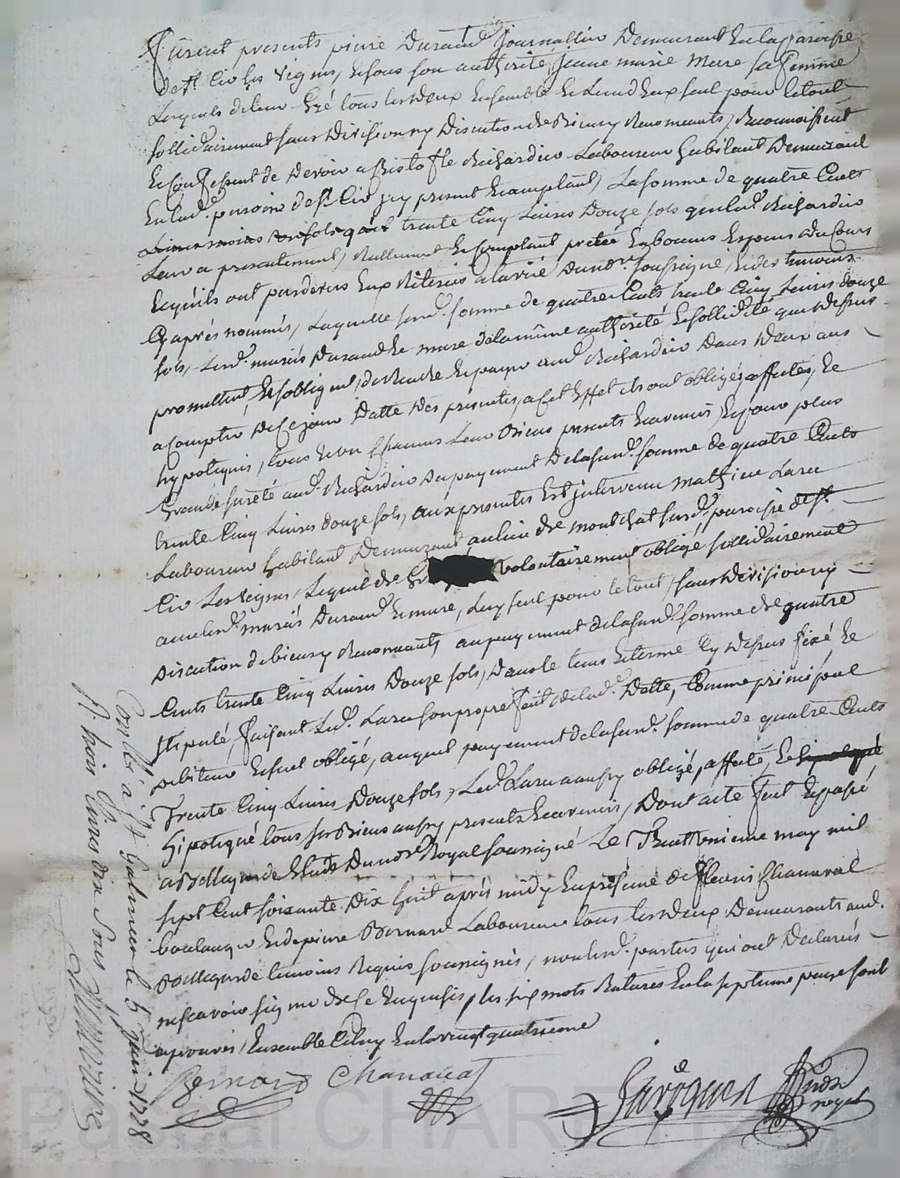 Furent presents pierre Durand Journallier Demeurant En la paroisse
de St Cir les vignes, Et sous son authorité, jeane marie Mure sa femme
Lesquels de leur Gré tous les deux Ensemble Et Lun d'Eux seul pour le tout
sollidairement sans Division ny Discution de Biens y Renoncants, Reconnoissent
Et Confessent de Devoir a Cristofle Richardier Laboureur habitant Demeurant
En lad. paroisse de St Cir jcy present Et acceptant, La somme de quatre Cents
trente Cinq Livres Douze sols que led. Richardier
Leur a presentement, Reellement Et Comptant pretée En bonnes Especes du Cours
Et quils ont pardevers Eux Retirés a la vüe du nore. soussigné, Et des temoins
Cy aprés nommés, Laquelle susd. somme de quatre Cents trente Cinq Livres douze
sols, Lesd. mariés Durand Et mure de la même authorité Et sollidité que dessus
promettent, Et sobligent, de Rendre Et payer aud. Richardier Dans Deux ans
a Compter De Ce jour Datte Des presentes, a Cet Effet ils ont obligés, affectés, Et
hypotequés, tous Et un Chacuns Leur Biens presents Et avenirs, Et pour plus
Grande sureté aud. Richardier du payement De lasusd. somme de quatre Cents
trente Cinq Livres douze sols, aux presentes Est jntervenu mathieu Larue
Laboureur habitant Demeurant au lieu de montchat susd. paroisse de St.
Cir Les vignes, Lequel de volontairement obligé sollidairement
avec lesd. mariés Durand Et mure, Luy seul pour le tout, sans Division ny
Discution de biens y Renoncants, au payement de lasusd. somme de quatre
Cents trente Cinq Livres Douze sols, Dans le tems Et terme Cy dessus fixé Et
stipulé, faisant Led. Larue son propre fait de lad. Datte, Comme principal
debiteur Et seul obligé, auquel payement de lasusd. somme de quatre Cents
Trente Cinq Livres Douze sols, Led. Larue a aussy obligé, affecté, Et
hipotequé tous ses Biens aussy presents Et avenirs, Dont acte fait Et passé
a Bellegarde Etude Du nore. Royal soussigné Le Trentenieme may mil
sept Cent soixante Dix huit aprés midy En presence de fleuris Chanavat
boulanger Et de pierre Bernard Laboureur tous les deux Demeurants aud.
Bellegarde temoins Requis soussignés, non lesd. parties qui ont Declarés
ne scavoir signer de Ce Enquises, les six mots Raturés En la septieme
approuvés, Ensemble Celuy En la vingt quatrieme
Bernard Chanavat
nore
royal
Conllé a St Galmier le 5 juin 1778
R. trois livres dix sous